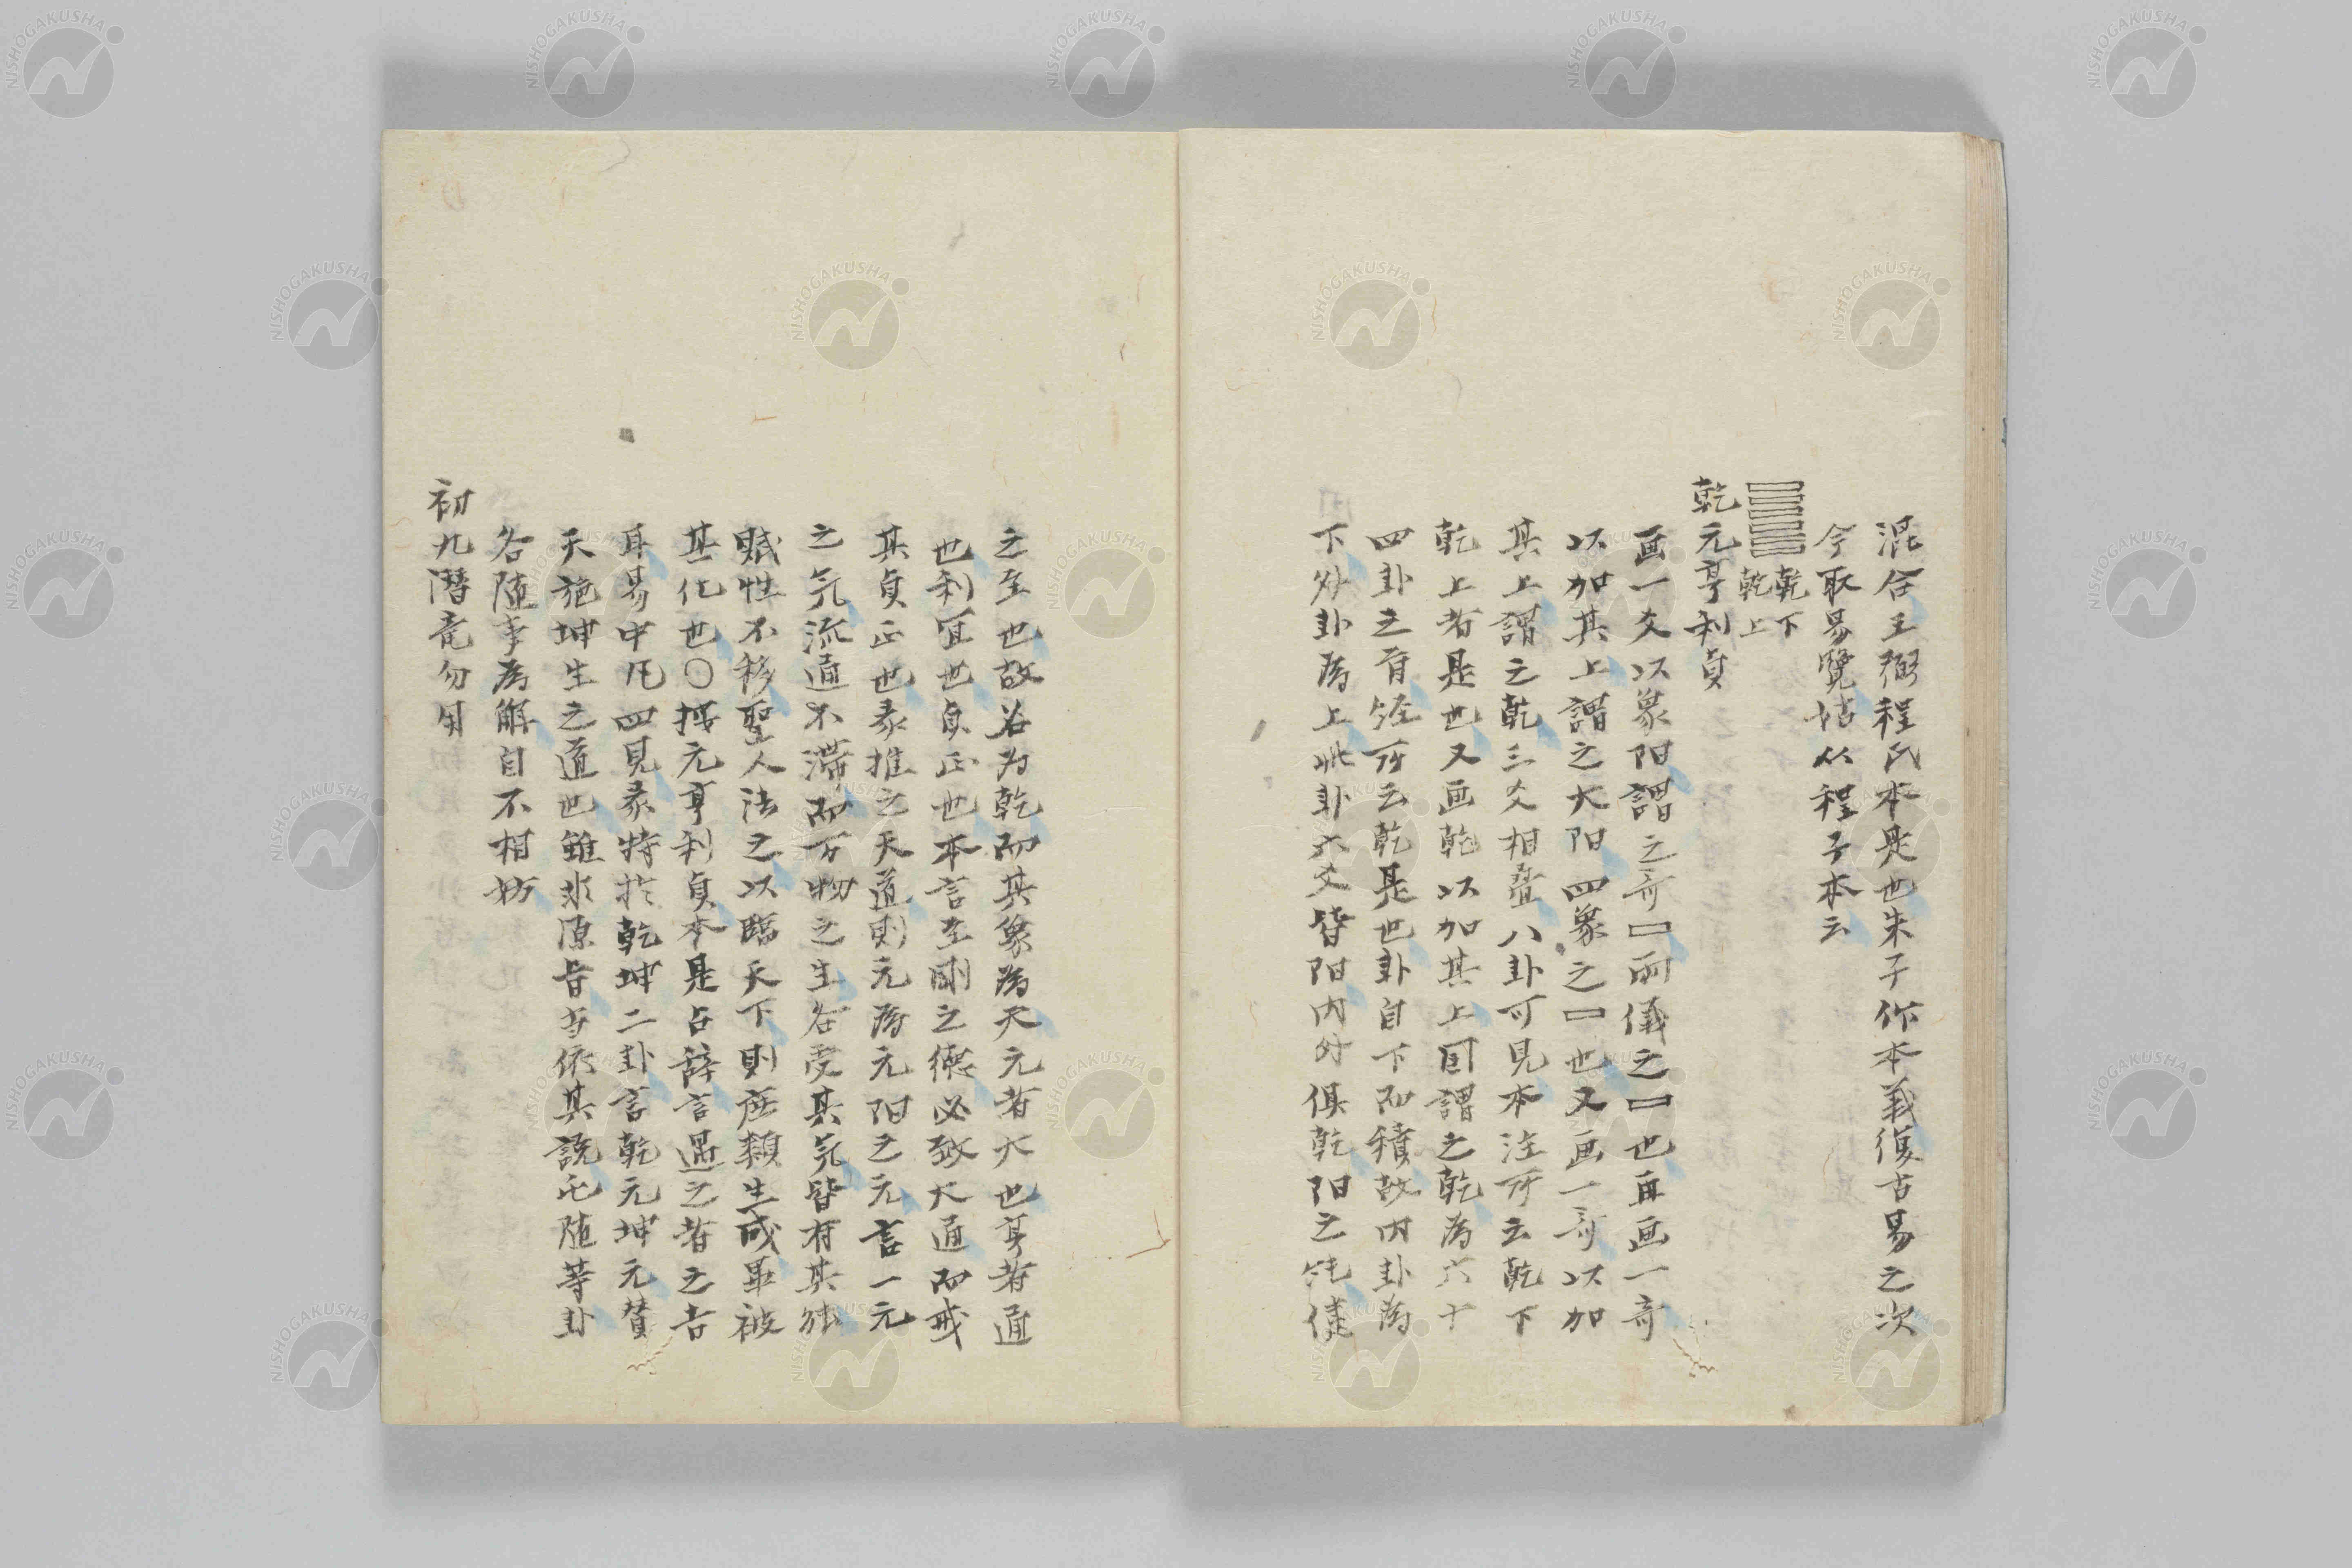 混合王弼程氏本是也朱子作本義復古易之次
今取易覽姑从程子本云
乾下
乾上
乾元亨利貞
画一爻以象阳謂之奇一两儀之一也再画一奇
以加其上謂之大阳四象之一也又画一奇以加
其上謂之乾三爻相疊八卦可見本注所云乾下
乾上者是也又画乾以加其上同謂之乾為六十
四卦之首経所云乾是也卦自下而積故内卦為
下外卦為上此卦六爻皆阳内外俱乾阳之純健
之至也故名为乾而其象為天元者大也亨者通
也利宜也貞正也本言至剛之德必致大通而戒
其貞正也彖推之天道則元為元阳之元言一元
之気流通不滞而万物之生各受其気皆有其
賦性不移聖人法之以臨天下則庶類生成畢被
其化也〇据元亨利貞本是占辞言遇之者之吉
耳易中凡四見彖特於乾坤二卦言乾元坤元賛
天施坤生之道也雖非原旨方依其説屯随等卦
各随事為解自不相妨
初九潜竜勿用